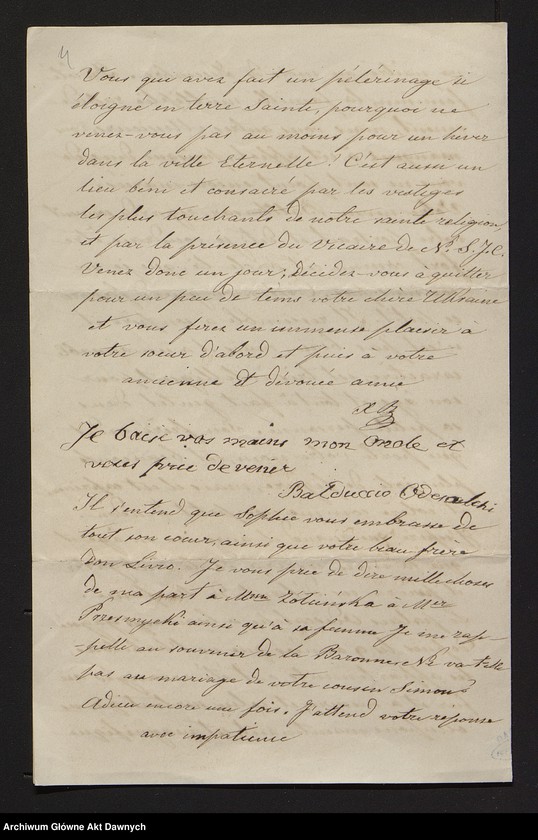 4
Vous que avez fait un pélérinage si
éloigné en terre Sainte, pourquoi ne
venez-vous pas au moins pour un hiver
dans la ville Eternelle! C'est aussi un
lieu béni et consacré par les vestiges
les plus touchants de notre sainte religion,
et par la présence du Vicaire de N. S. J. C.
Venez donc un jour, décidez-vous a quitter
pour un peu de tems votre chère Ukraine
et vous ferez un immense plaisir a
votre soeur d'abord et puis à votre
ancienne et dévouée amie
Je baise vos mains mon Oncle et
vous prie de venir
Balduccio Odescalchi
Il s'entend que Sophie vous embrasse de
tout son coeur, ainsi que votre beau frère
Don Livio. Je vous prie de dire mille choses
de ma part à Mme Zótińska à Mer
Przesmycki ainsi qu'à sa femme Je me rap-
-pelle au souvenir de la Baronne N. va t'elle
pas au mariage de votre cousin Simon?
Adieu encore une fois. J'attend votre réponse
avec impatience
Archiwum Główne Akt Dawnych